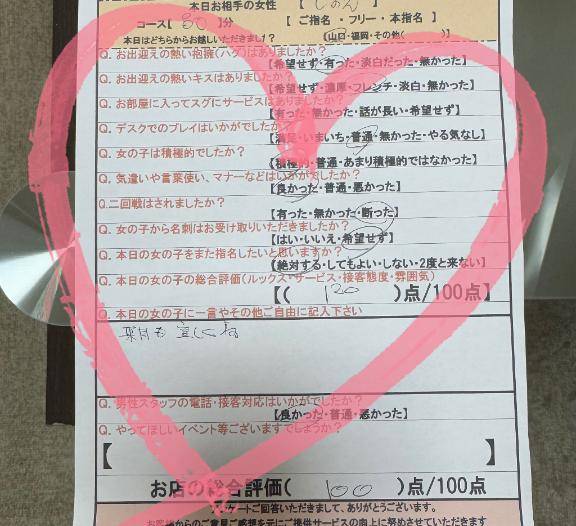 本日お相手の女性 【 じゅん 】
コース【 80 】分 【 ご指名 ・ フリー ・ 本指名 】
本日はどちらからお越しいただきましたか? 【山口・福岡・その他( )】
Q. お出迎えの熱い抱擁(ハグ)はありましたか?
【希望せず・有った・淡白だった・無かった】
Q. お出迎えの熱いキスはありましたか?
【希望せず・濃厚・フレンチ・淡白・無かった】
Q. お部屋に入ってスグにサービスはありましたか?
【有った・無かった・話が長い・希望せず】
Q. デスクでのプレイはいかがでしたか?
【満足・いまいち・普通・無かった・やる気なし】
Q. 女の子は積極的でしたか?
【積極的・普通・あまり積極的ではなかった】
Q. 気遣いや言葉使い、マナーなどはいかがでしたか?
【良かった・普通・悪かった】
Q.二回戦はされましたか?
【有った・無かった・断った】
Q. 女の子から名刺はお受け取りいただきましたか?
【はい・いいえ・希望せず】
Q. 本日の女の子をまた指名したいと思いますか?
【絶対する・してもよい・しない・2度と来ない】
Q. 本日の女の子の総合評価(ルックス・サービス・接客態度・雰囲気)
【( 120 )点/100点】
Q. 本日の女の子に一言やその他ご自由に記入下さい
来月も宜しくね
Q. 男性スタッフの電話・接客対応はいかがでしたか?
【良かった・普通・悪かった】
Q. やってほしいイベント等ございますでしょうか?
【 】
お店の総合評価( 100 )点/100点
アンケートご回答いただきまして、ありがとうございます。
お客様からのご意見ご感想を元にご提供サービスの向上に努めさせていただきます